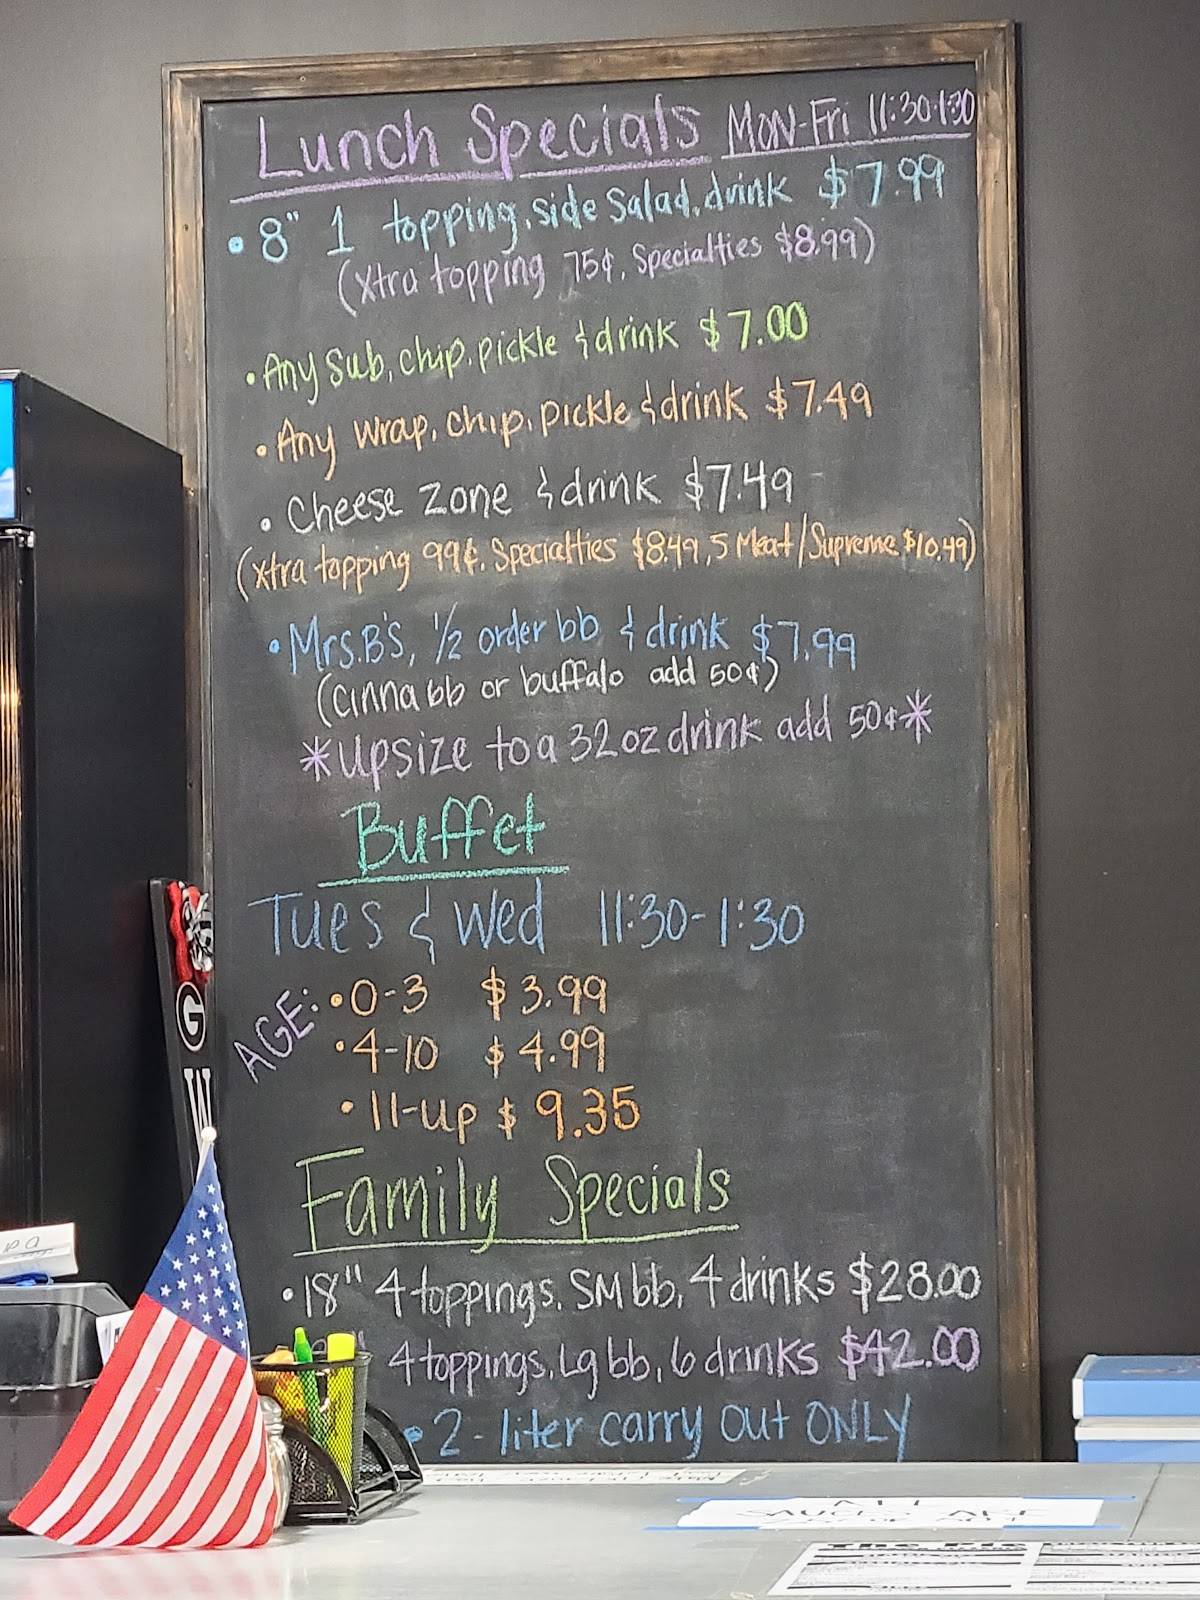 Lunch Specials MON-Fri 11:30-1:30
• 8" 1 topping, side salad, drink $7.99
(xtra topping 75¢, Specialties $8.99)
• Any Sub, chip, pickle & drink $7.00
• Any wrap, chip, pickle & drink $7.49
• Cheese Zone & drink $7.49
(xtra topping 99¢, Specialties $8.49, 5 Meat/Supreme $10.49)
• Mrs.B's, 1/2 order bb & drink $7.99
(cinna bb or buffalo add 50¢)
*Upsize to a 32 oz drink add 50¢*
Buffet
Tues & Wed 11:30-1:30
AGE: • 0-3 $3.99
• 4-10 $4.99
• 11-up $9.35
Family Specials
• 18" 4 toppings, SM bb, 4 drinks $28.00
4 toppings, Lg bb, 6 drinks $42.00
• 2-liter carry out ONLY
G
W
ALL
The Pie